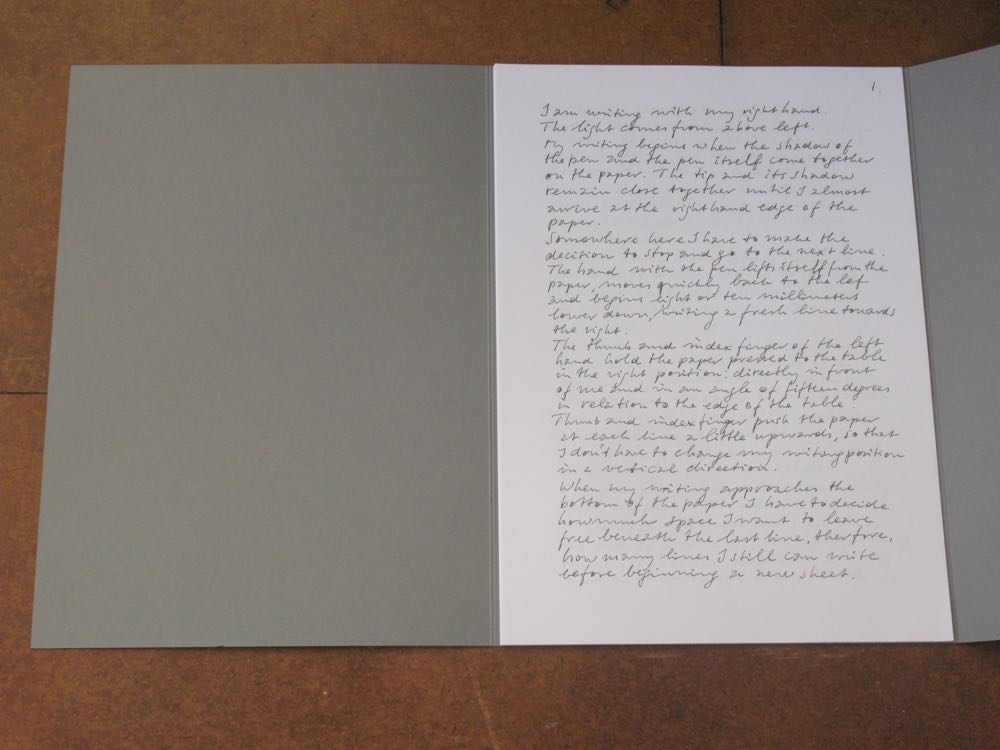 1.
I am writing with my right hand.
The light comes from above left.
My writing begins when the shadow of
the pen and the pen itself come together
on the paper. The tip and its shadow
remain close together until I almost
arrive at the right hand edge of the
paper.
Somewhere here I have to make the
decision to stop and go to the next line.
The hand with the pen lifts itself from the
paper, moves quickly back to the left
and begins eight or ten millimeters
lower down, writing a fresh line towards
the right.
The thumb and index finger of the left
hand hold the paper pressed to the table
in the right position: directly in front
of me and in an angle of fifteen degrees
in relation to the edge of the table.
Thumb and index finger push the paper
at each line a little upwards, so that
I don't have to change my writing position
in a vertical direction.
When my writing approaches the
bottom of the paper I have to decide
how much space I want to leave
free beneath the last line, therfore,
how many lines I still can write
before beginning a new sheet.